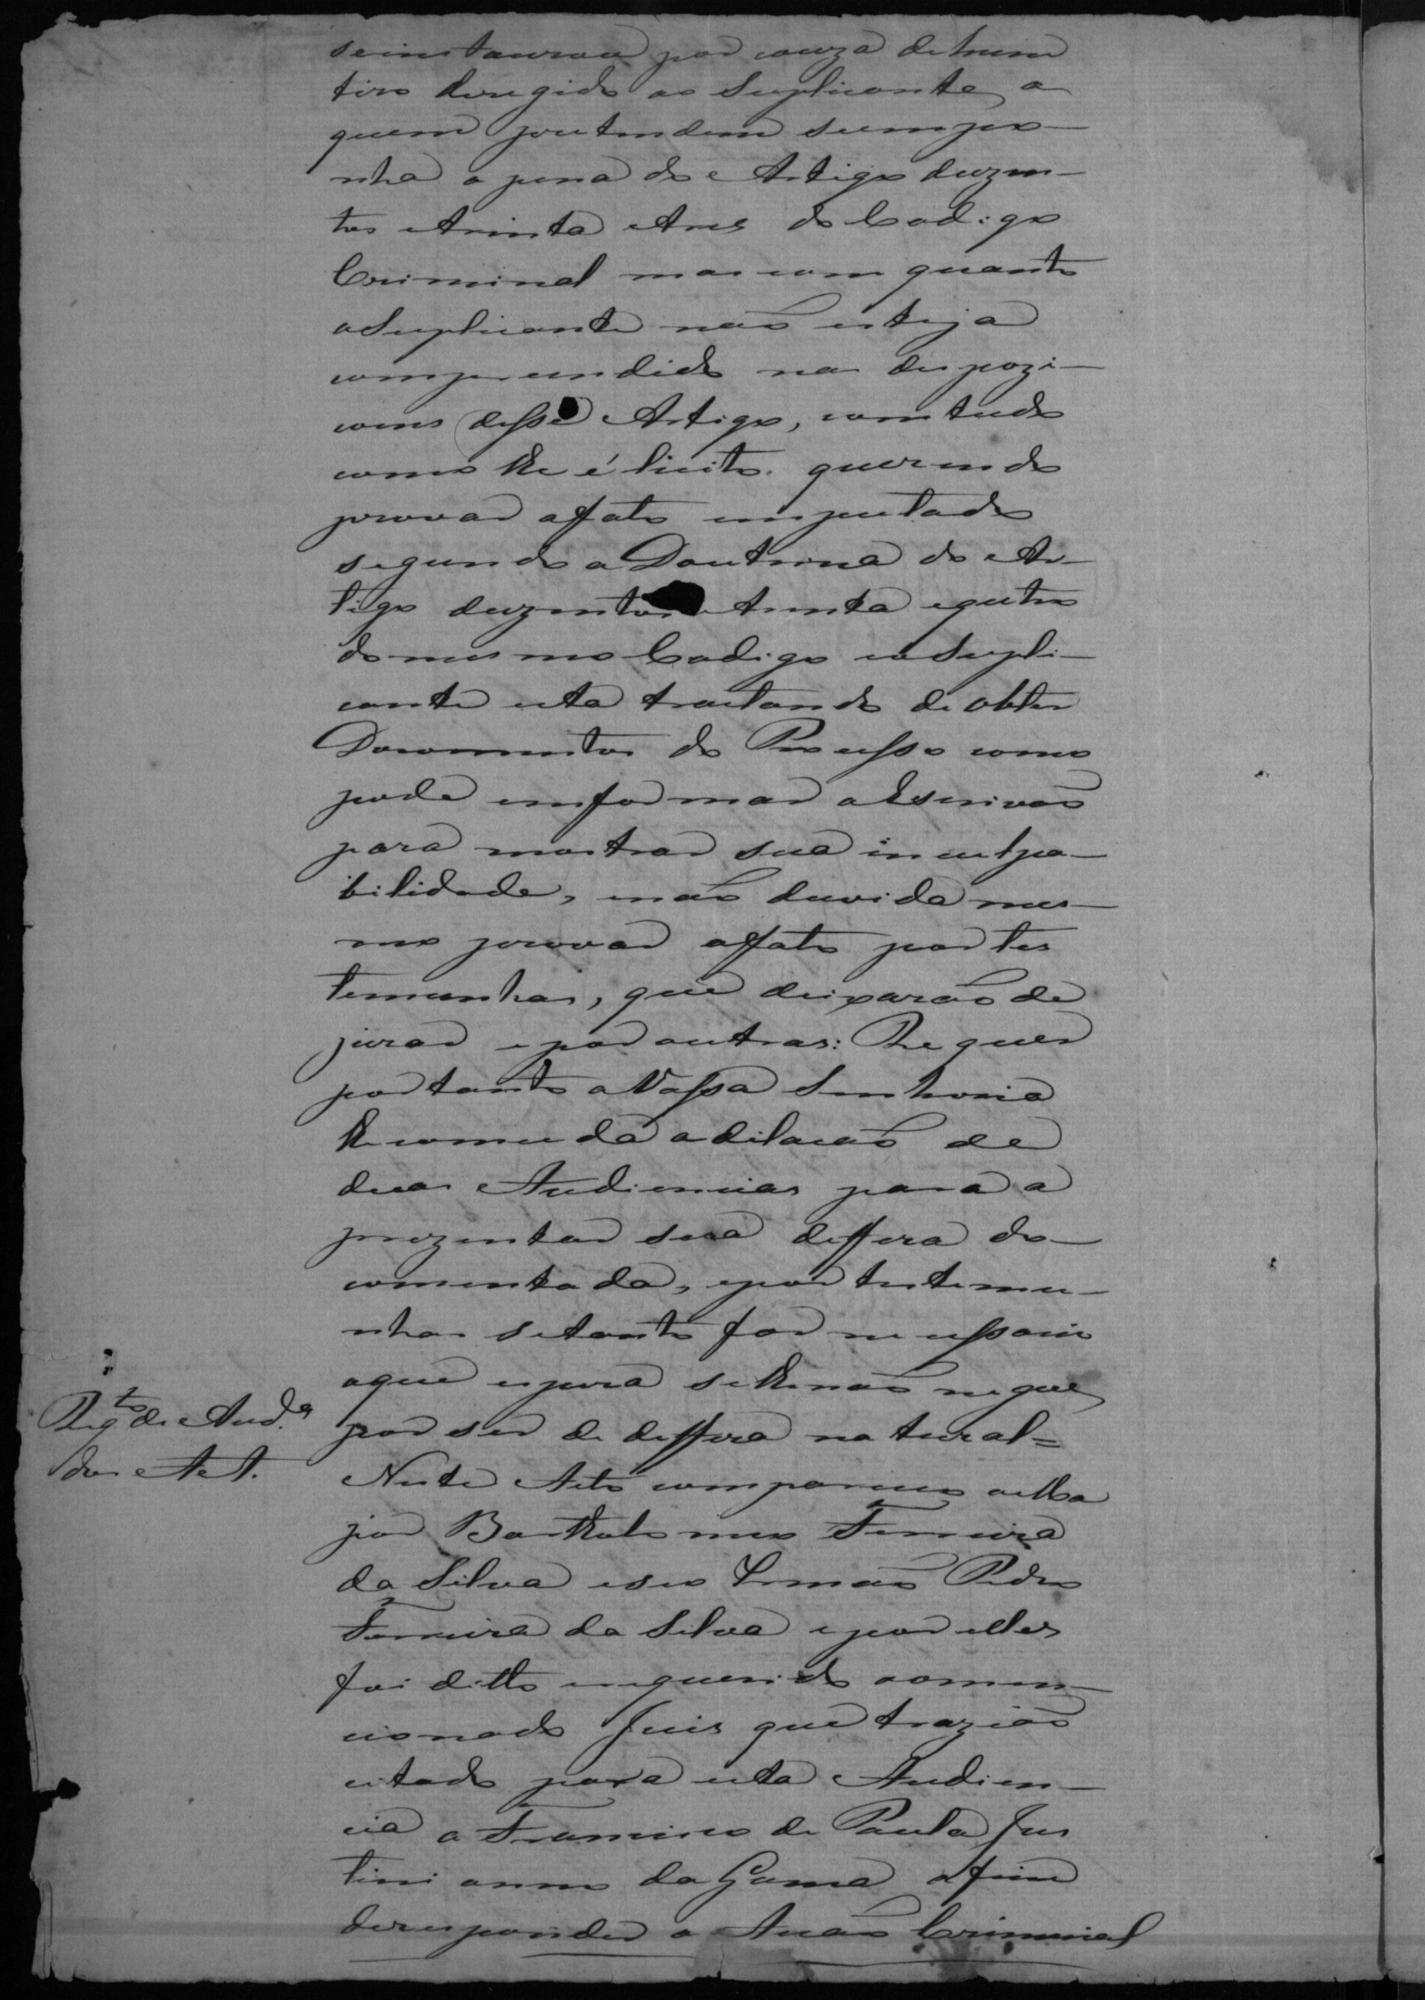 seinstaurou por cauza dehum
tiro deregido ao Suplicante, a
quem pretendem seimpo-
nha a pena do Artigo duzen-
tos etrinta etres do Codigo
Criminal mas com quanto
oSuplicante não esteja
compreendido nas dispozi-
coens desse Artigo, com tudo
como lhe é licito querendo
provar ofato imputado
segundo a Doutrina do Ar-
tigo duzentos etrinta equatro
domesmo Codigo eoSupli-
cante esta tractando de obter
Documentos do Processo como
pode imformar oEscrivão
para mostrar sua inculpa-
bilidade, enão duvida mes-
mo provar ofato por tes
temunhas, que deixarão de
jurar epor outras: Requer
portanto aVossa Senhoria
lhe conceda a dilacão de
duas Audiencias para a
prezentar sua deffeza do-
comentada, epor testemu-
nhas setanto for necessario
oque espera selhenão negue,
por ser de deffeza natural=
Reqto de Aud.a
dos AeA.
Neste Acto compareceo oMa
jor Bartholomeo Ferreira
da Silva eseo Irmão Pedro
Ferreira da Silva epor elles
foi ditto erequerido aomen-
cionado Juis que trazião
citado para esta Audien-
cia a Francisco de Paula Jus
tinianno da Gama afim
deresponder a Acão Criminal